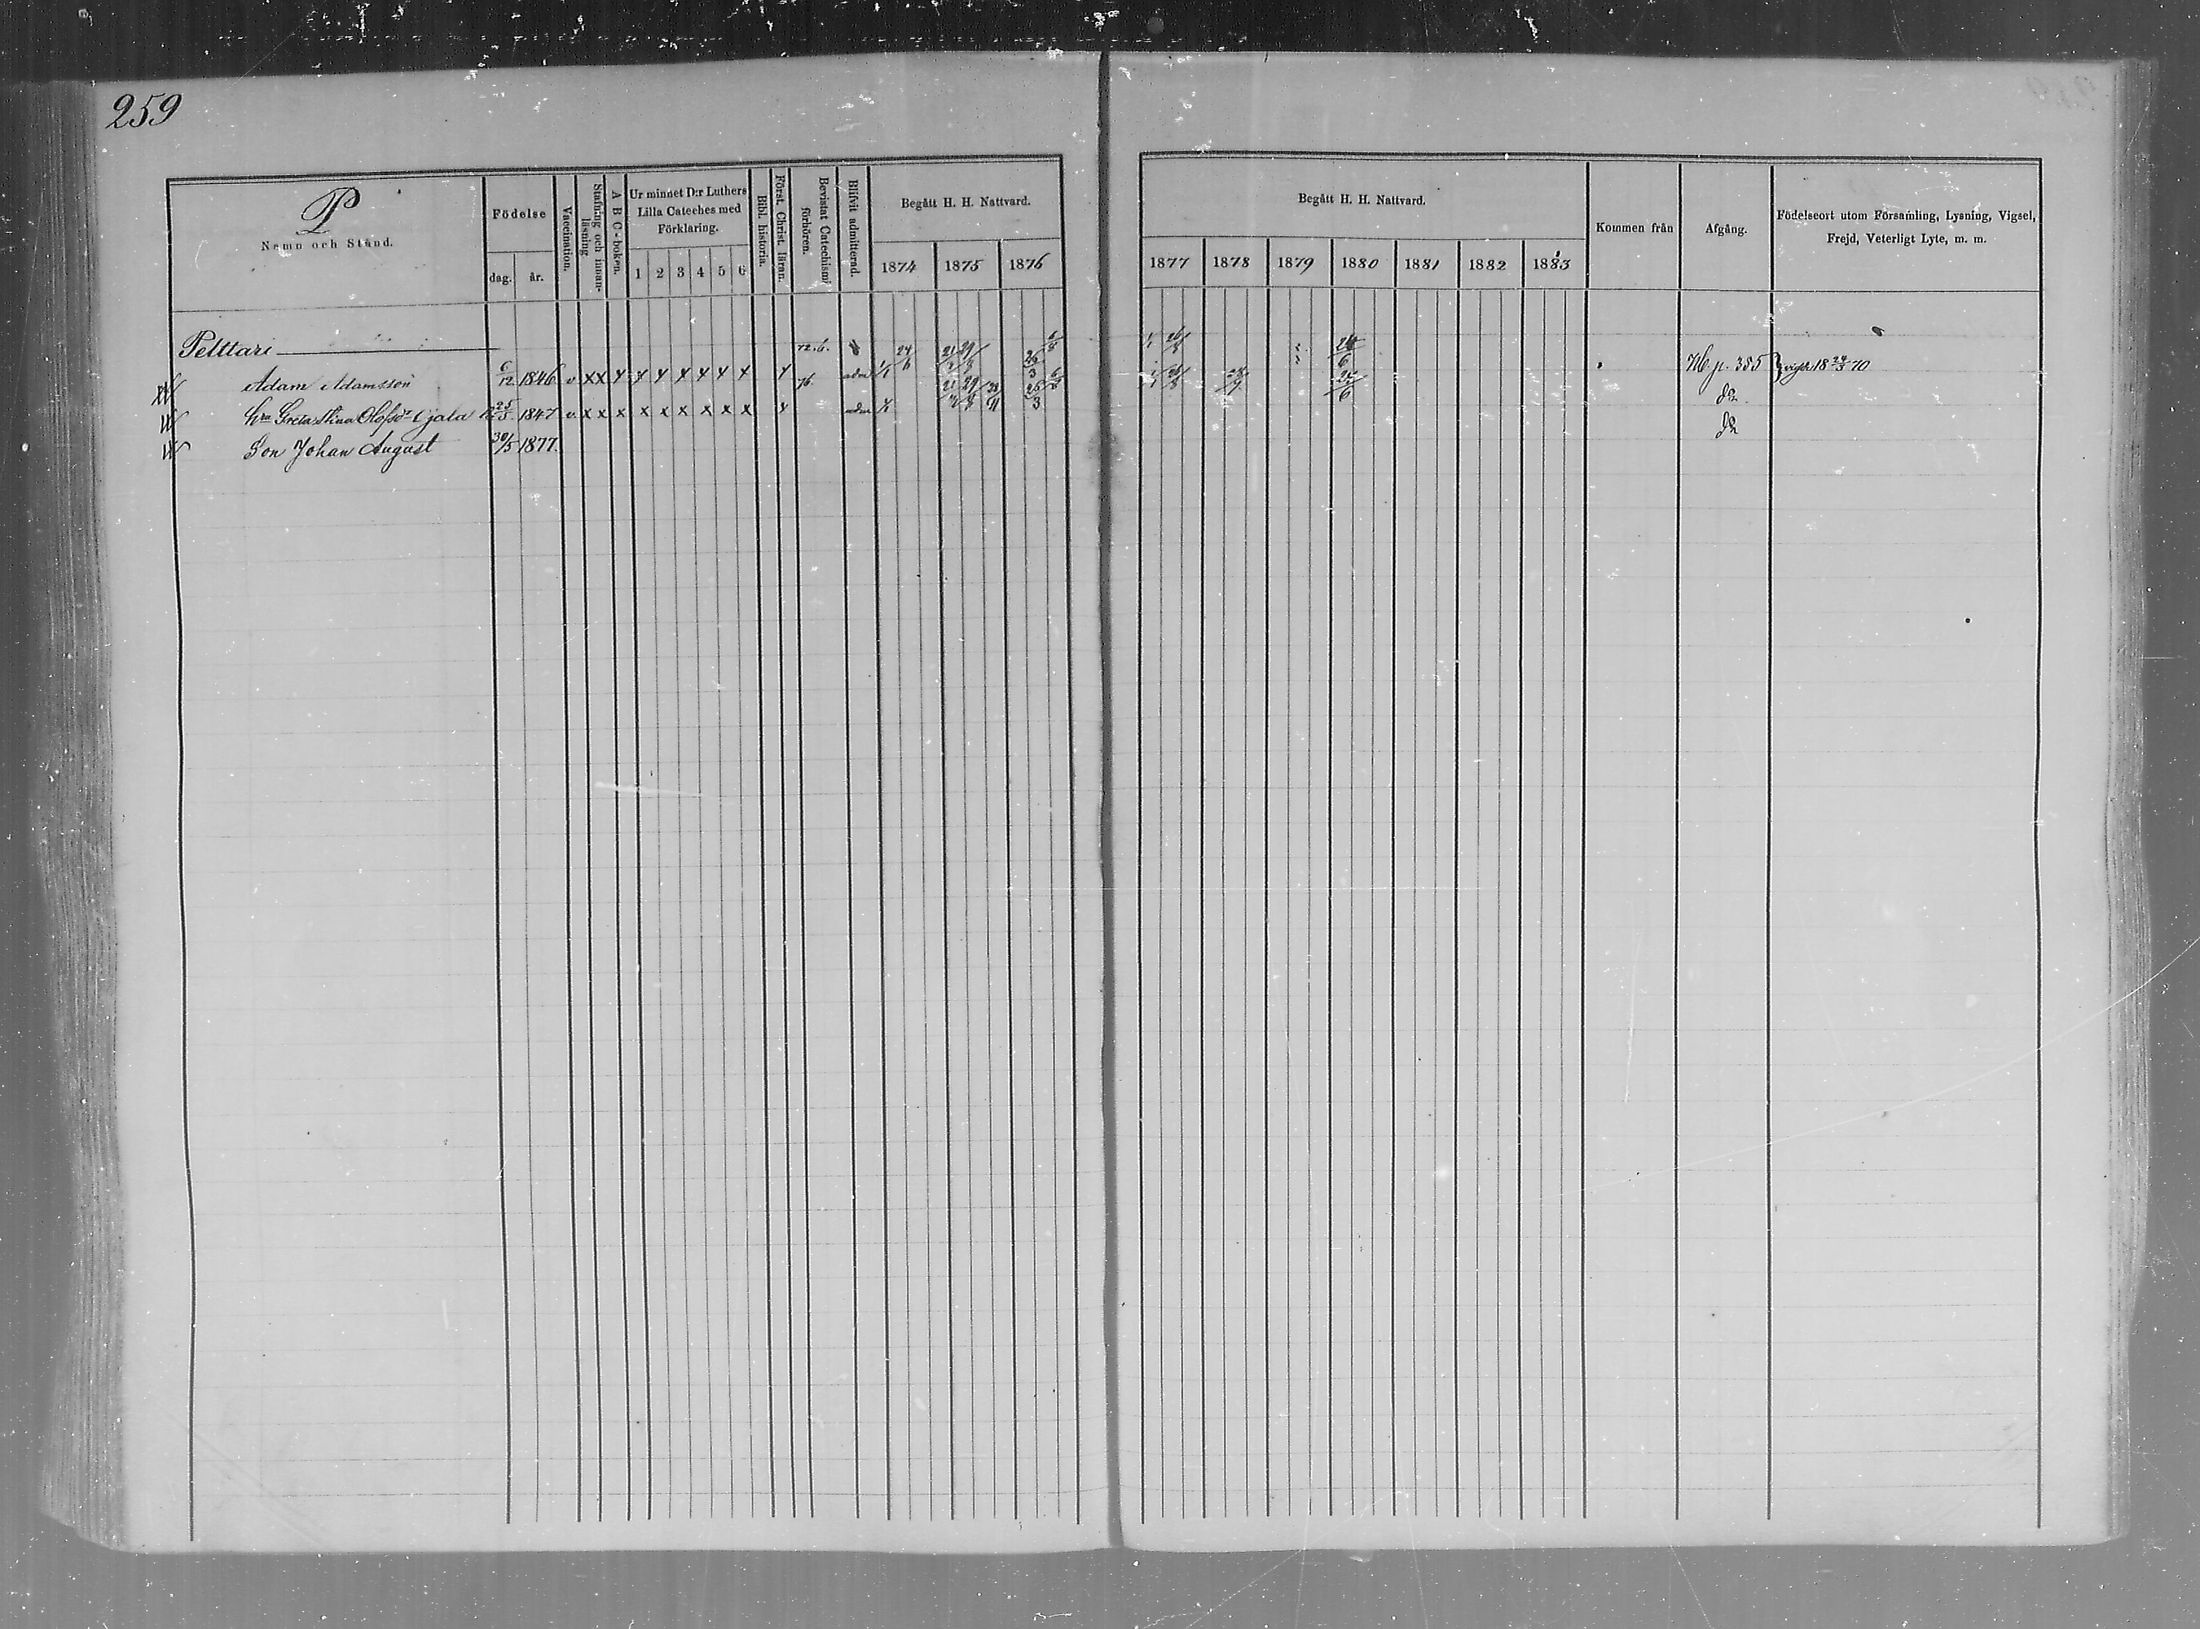 259
P
Nemn och Stånd.
Födelse
dag. år.
Vaccination.
Stafning och innanläsning
A B C-boken.
Ur minnet D:r Luthers Lilla Cateches med Förklaring.
1 2 3 4 5 6
Bibl. historia.
Först. Christ. läran.
Bevistat Catechismi förhören.
Blifvit admitterad.
Begått H. H. Nattvard.
1874 1875 1876
Begått H. H. Nattvard.
1877 1878 1879 1880 1881 1882 1883
Kommen från
Afgång.
Födelseort utom Församling, Lysning, Vigsel, Frejd, Veterligt Lyte, m. m.
Pelttari
Adam Adamsson 6/12 1846 v x x x x x x x x x x 72. 6. adm 24/6 21/2 29/8 26/3 6/8 26/8 24/6 p. 385 vigde 18 24/3 70
hu Greta Stina Olofsdr 25/5 1847 v x x x x x x x x x x 76. adm 21/2 29/8 26/3 26/8 28/7 26/6 do
Son Johan August 30/5 1877. do